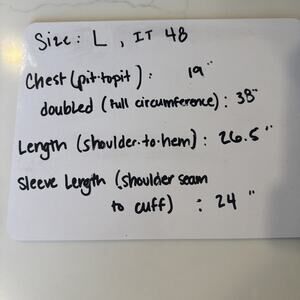 Size: L, IT 48
Chest (pit-to-pit): 19"
doubled (full circumference): 38"
Length (shoulder-to-hem): 26.5"
Sleeve Length (shoulder seam
to cuff) : 24"